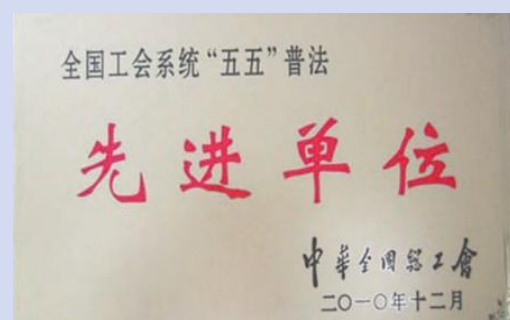 全国工会系统“五五”普法
先进单位
中华全国総工會
二〇一〇年十二月